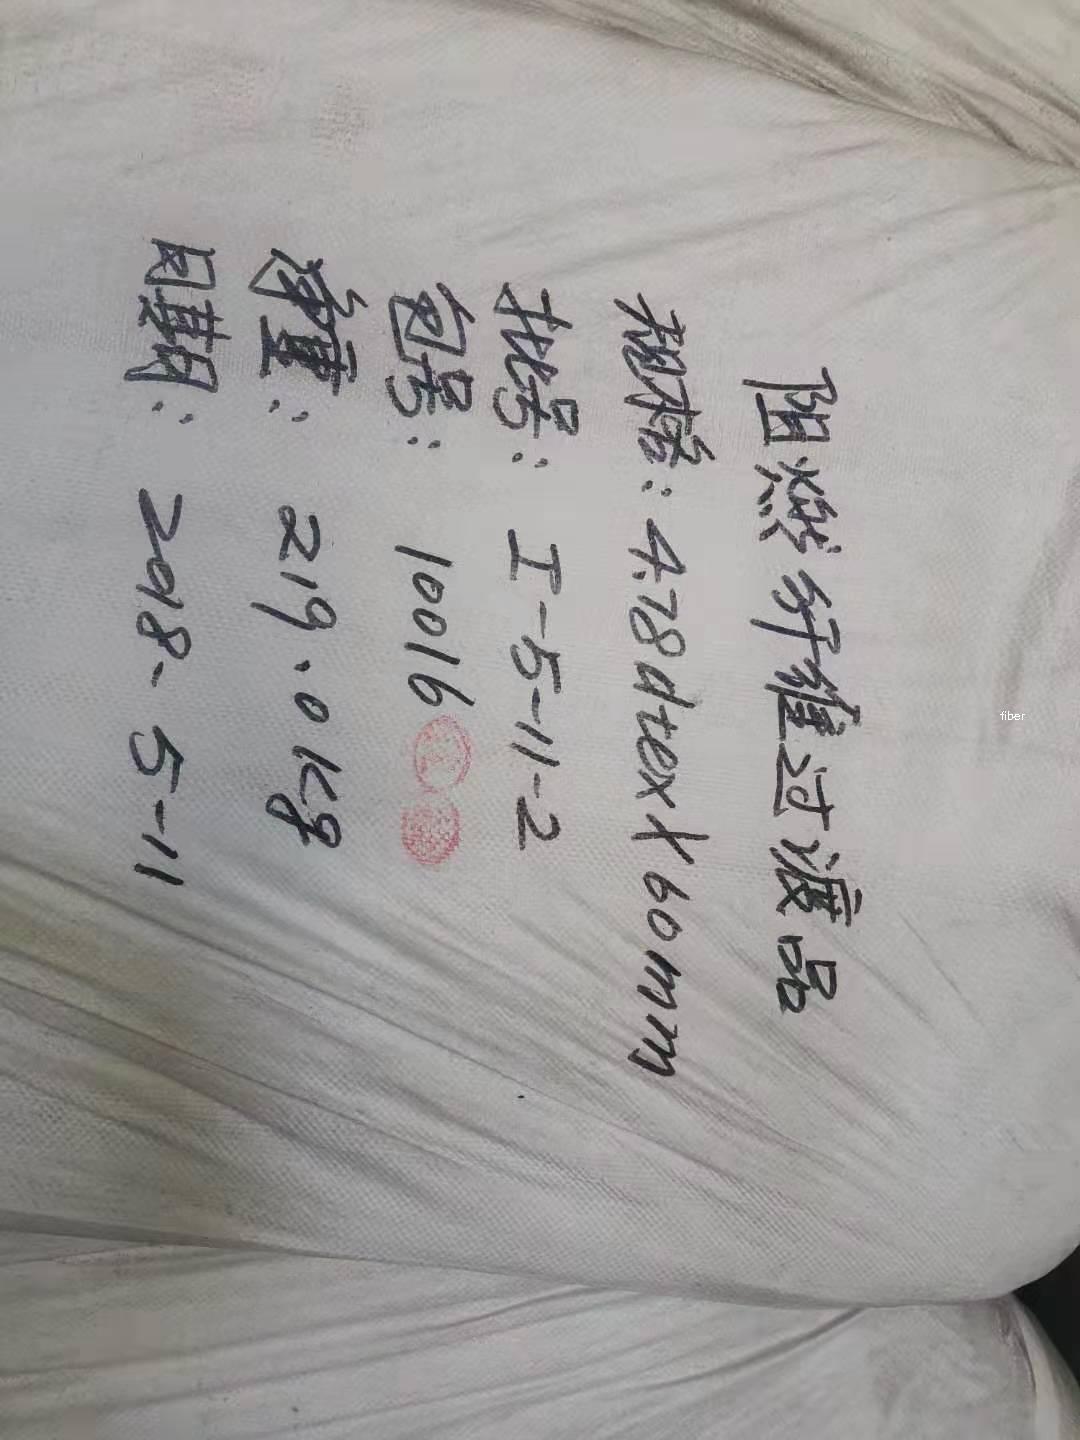 阻燃纤维过渡品
规格:4.78dtex×60mm
批号:I-5-11-2
包号:10016
净重:219.0Kg
日期:2018.5-11
fiber